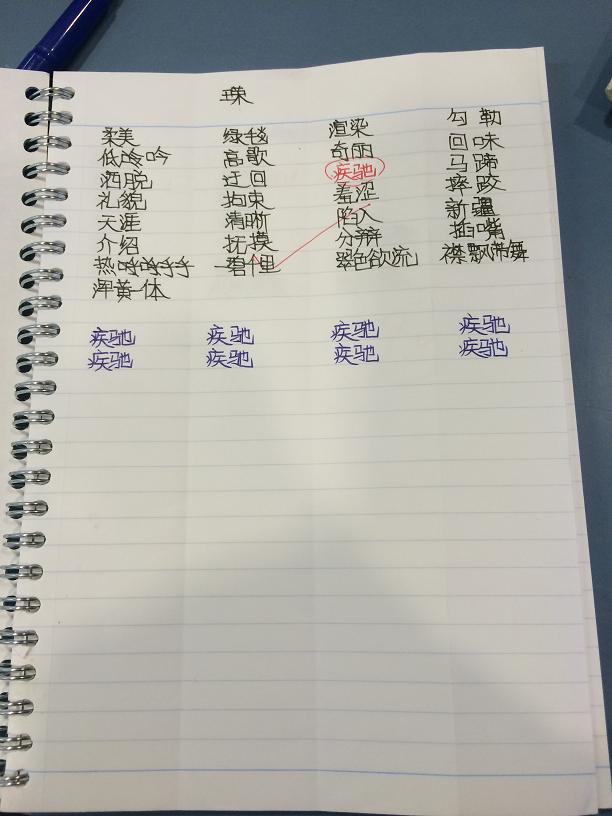 柔美 绿毯 渲染 勾勒
高歌 奇丽 回味
洒脱 迂回 疾驰 马蹄
礼貌 拘束 羞涩 摔跤
天涯 清晰 陷入 新疆
介绍 抚摸 分辩 插嘴
一碧千里 翠色欲流 襟飘带舞
浑黄一体
疾驰 疾驰 疾驰 疾驰
疾驰 疾驰 疾驰 疾驰